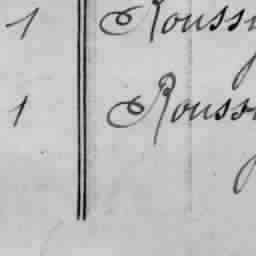 1 Rouss
1 Rouss